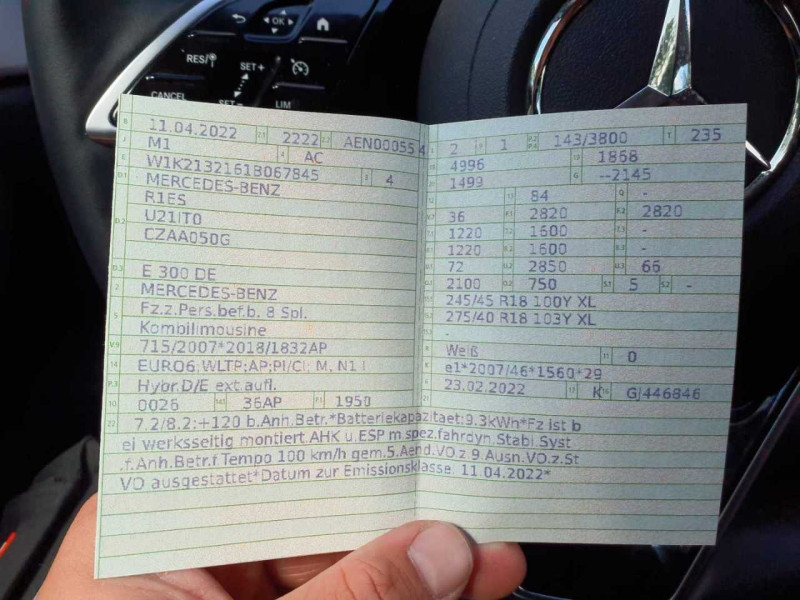 RES/
OK
SET+
CANCEL
SET-
LIM
B 11.04.2022 2.1 2222 2.2 AEN00055 4
J M1 4 AC
E W1K2132161B067845 3 4
D.1 MERCEDES-BENZ
R1ES
D.2 U21IT0
CZAA050G
D.3 E 300 DE
2 MERCEDES-BENZ
5 Fz.z.Pers.bef.b. 8 Spl.
Kombilimousine
V.9 715/2007*2018/1832AP
14 EURO6;WLTP;AP;PI/CI; M, N1 I
P.3 Hybr.D/E ext.aufl.
10 0026 14.1 36AP P.1 1950
L 2 9 1 P.2 P.4 143/3800 T 235
18 4996 19 1868
20 1499 G --2145
13 84 Q -
V.7 36 F.1 2820 F.2 2820
7.1 1220 7.2 1600 7.3 -
8.1 1220 8.2 1600 8.3 -
U.1 72 U.2 2850 U.3 66
O.1 2100 O.2 750 S.1 5 S.2 -
15.1 245/45 R18 100Y XL
15.2 275/40 R18 103Y XL
15.3 -
R Weiß 11 0
K e1*2007/46*1560*29
6 23.02.2022 17 K 16 GJ446846
21
22 7.2/8.2:+120 b.Anh.Betr.*Batteriekapazitaet:9.3kWh*Fz ist b
ei werksseitig montiert.AHK u.ESP m.spez.fahrdyn.Stabi.Syst
.f.Anh.Betr.f.Tempo 100 km/h gem.5.Aend.VO.z 9.Ausn.VO.z.St
VO ausgestattet*Datum zur Emissionsklasse: 11.04.2022*